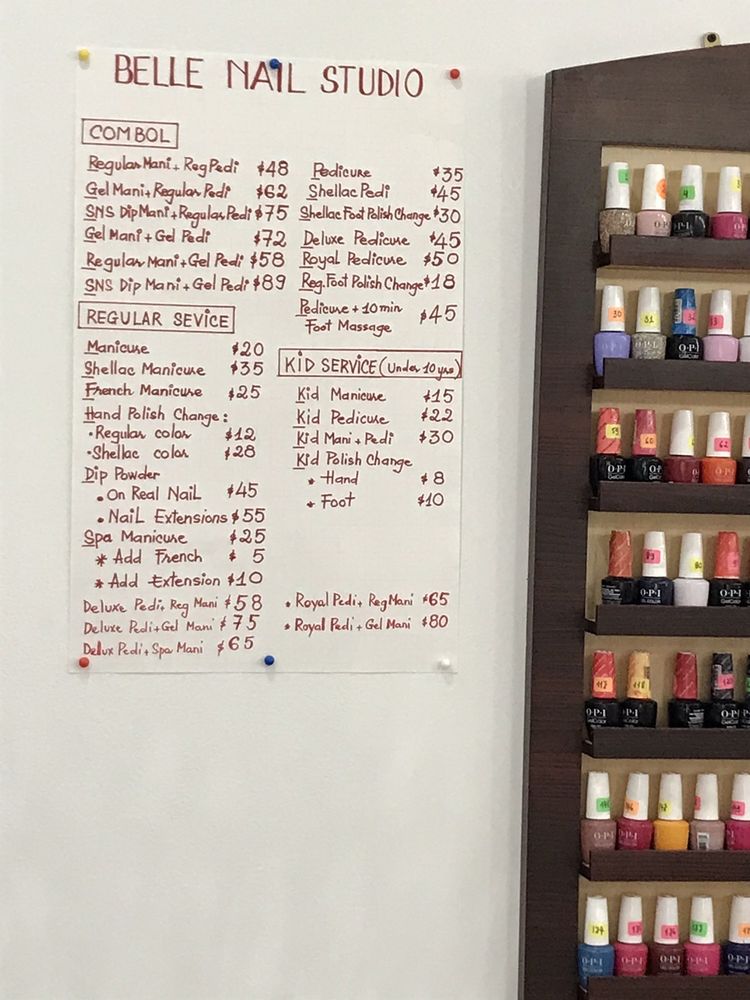 BELLE NAIL STUDIO
COMBOL
Regular Mani + Reg Pedi $48
Gel Mani + Regular Pedi $62
SNS Dip Mani + Regular Pedi $75
Gel Mani + Gel Pedi $72
Regular Mani + Gel Pedi $58
SNS Dip Mani + Gel Pedi $89
REGULAR SEVICE
Manicure $20
Shellac Manicure $35
French Manicure $25
Hand Polish Change:
• Regular color $12
• Shellac color $28
Dip Powder
• On Real Nail $45
• Nail Extensions $55
Spa Manicure $25
* Add French $ 5
* Add Extension $10
Deluxe Pedi + Reg Mani $58
Deluxe Pedi + Gel Mani $75
Delux Pedi + Spa Mani $65
Pedicure $35
Shellac Pedi $45
Shellac Foot Polish Change $30
Deluxe Pedicure $45
Royal Pedicure $50
Reg. Foot Polish Change $18
Pedicure + 10min $45
Foot Massage
KID SERVICE (Under 10 yrs)
Kid Manicure $15
Kid Pedicure $22
Kid Mani + Pedi $30
Kid Polish Change
* Hand $ 8
* Foot $10
* Royal Pedi + Reg Mani $65
* Royal Pedi + Gel Mani $80
4
30 31
O·P·I O·P·I
59 60 62
O·P·I O·P·I
117 118
O·P·I O·P·I
O·P·I O·P·I O·P·I
134
O·P·I O·P·I O·P·I